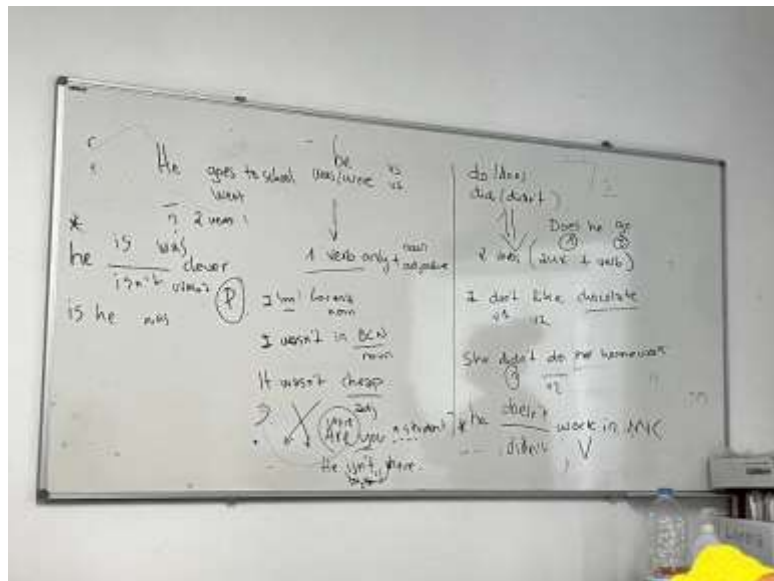 He goes to school
went
2 verbs
*
he is was
isn't wasn't clever
is he was
be
was/were vs
vs
1 verb only + noun
adjective
I 'm
noun
I wasn't in BCN
noun
It wasn't cheap
adj
Are you a student
He isn't here.
do/does
did (didn't)
Does he go
1 2
2 verbs (aux + verb)
I don't like chocolate
v1 v2
She didn't do homework
v2
* he doesn't work in
didn't V